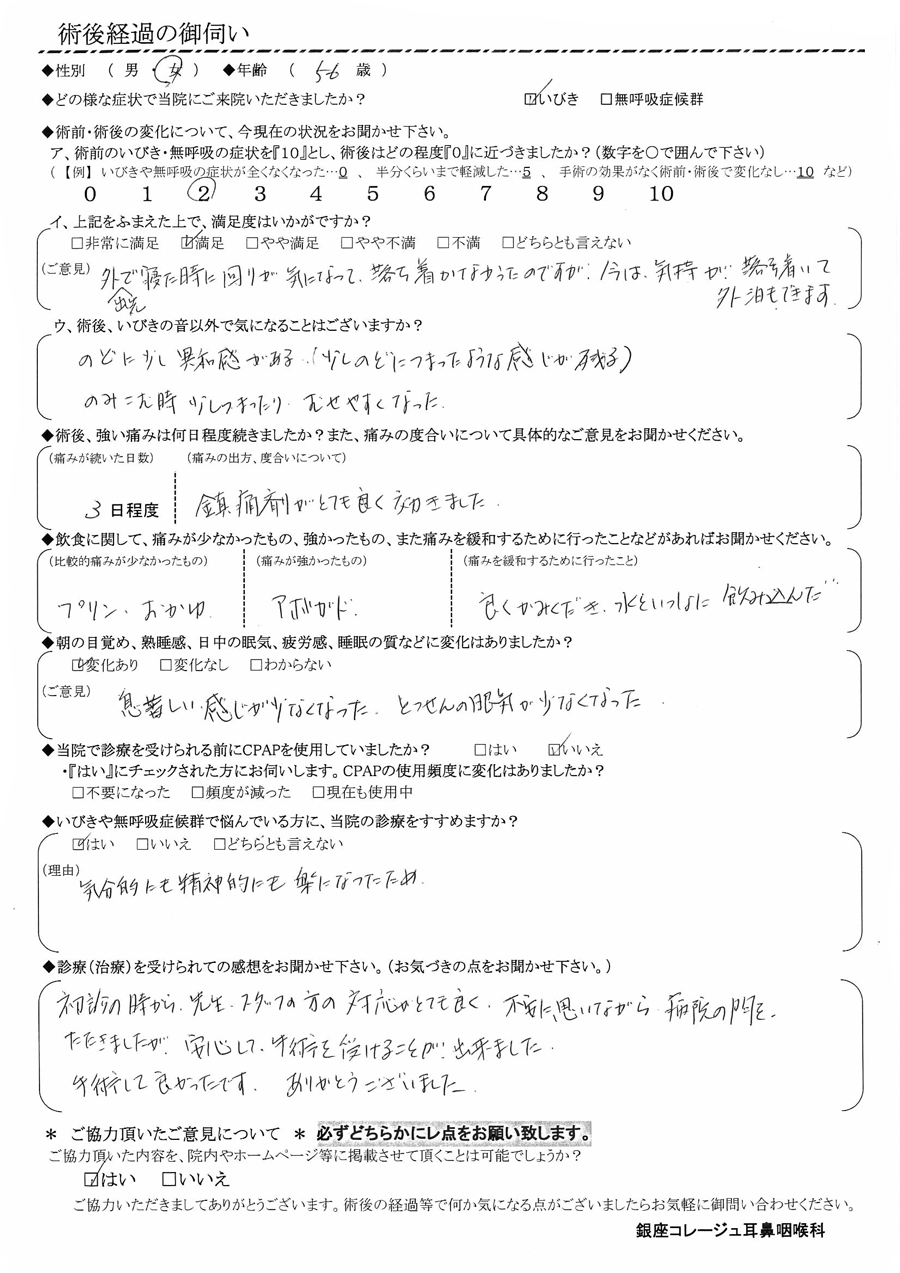 術後経過の御伺い
◆性別 ( 男 ・ 女 ) ◆年齢 ( 56 歳 )
◆どの様な症状で当院にご来院いただきましたか? ☑いびき □無呼吸症候群
◆術前・術後の変化について、今現在の状況をお聞かせ下さい。
ア、術前のいびき・無呼吸の症状を『10』とし、術後はどの程度『0』に近づきましたか?(数字を○で囲んで下さい)
( 【例】 いびきや無呼吸の症状が全くなくなった…0 、 半分くらいまで軽減した…5 、 手術の効果がなく術前・術後で変化なし…10 など)
0 1 2 3 4 5 6 7 8 9 10
イ、上記をふまえた上で、満足度はいかがですか?
□非常に満足 ☑満足 □やや満足 □やや不満 □不満 □どちらとも言えない
(ご意見) 外で寝た時に回りが気になって、落ち着かなかったのですが、今は、気持が落ち着いて
外泊もできます
ウ、術後、いびきの音以外で気になることはございますか?
のどに少し異和感がある.(少しのどにつまったような感じが残る)
のみこむ時少しつまったり、むせやすくなった.
◆術後、強い痛みは何日程度続きましたか?また、痛みの度合いについて具体的なご意見をお聞かせください。
(痛みが続いた日数) (痛みの出方、度合いについて)
3 日程度 鎮痛剤がとても良く効きました.
◆飲食に関して、痛みが少なかったもの、強かったもの、また痛みを緩和するために行ったことなどがあればお聞かせください。
(比較的痛みが少なかったもの) (痛みが強かったもの) (痛みを緩和するために行ったこと)
プリン、おかゆ アボガド. 良くかみくだき、水といっしょに飲み込んだ
◆朝の目覚め、熟睡感、日中の眠気、疲労感、睡眠の質などに変化はありましたか?
☑変化あり □変化なし □わからない
(ご意見) 息苦しい感じが少なくなった. とつぜんの眠気が少なくなった.
◆当院で診療を受けられる前にCPAPを使用していましたか? □はい ☑いいえ
・『はい』にチェックされた方にお伺いします。CPAPの使用頻度に変化はありましたか?
□不要になった □頻度が減った □現在も使用中
◆いびきや無呼吸症候群で悩んでいる方に、当院の診療をすすめますか?
☑はい □いいえ □どちらとも言えない
(理由) 気分的にも精神的にも楽になったため.
◆診療(治療)を受けられての感想をお聞かせ下さい。(お気づきの点をお聞かせ下さい。)
初診の時から、先生、スタッフの方の対応がとても良く、不安に思いながら、病院の門を、
たたきましたが、安心して、手術を受けることが出来ました.
手術して良かったです. ありがとうございました.
＊ ご協力頂いたご意見について ＊ 必ずどちらかにレ点をお願い致します。
ご協力頂いた内容を、院内やホームページ等に掲載させて頂くことは可能でしょうか?
☑はい □いいえ
ご協力いただきましてありがとうございます。術後の経過等で何か気になる点がございましたらお気軽に御問い合わせください。
銀座コレージュ耳鼻咽喉科